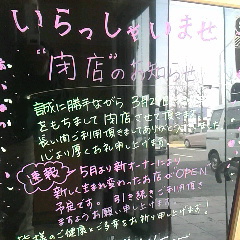 いらっしゃいませ
"閉店"のお知らせ
誠に勝手ながら 3月2
をもちまして閉店させて頂きます
長い間ご利用頂きましてありがとうございました
心より厚くお礼申し上げます!
速報 5月より新オーナーにより
新しく生まれ変わったお店がOPEN
予定です。引き続きご利用頂き
ますようお願い申し上げます!
皆様のご健康とご多幸をお祈り申し上げます!